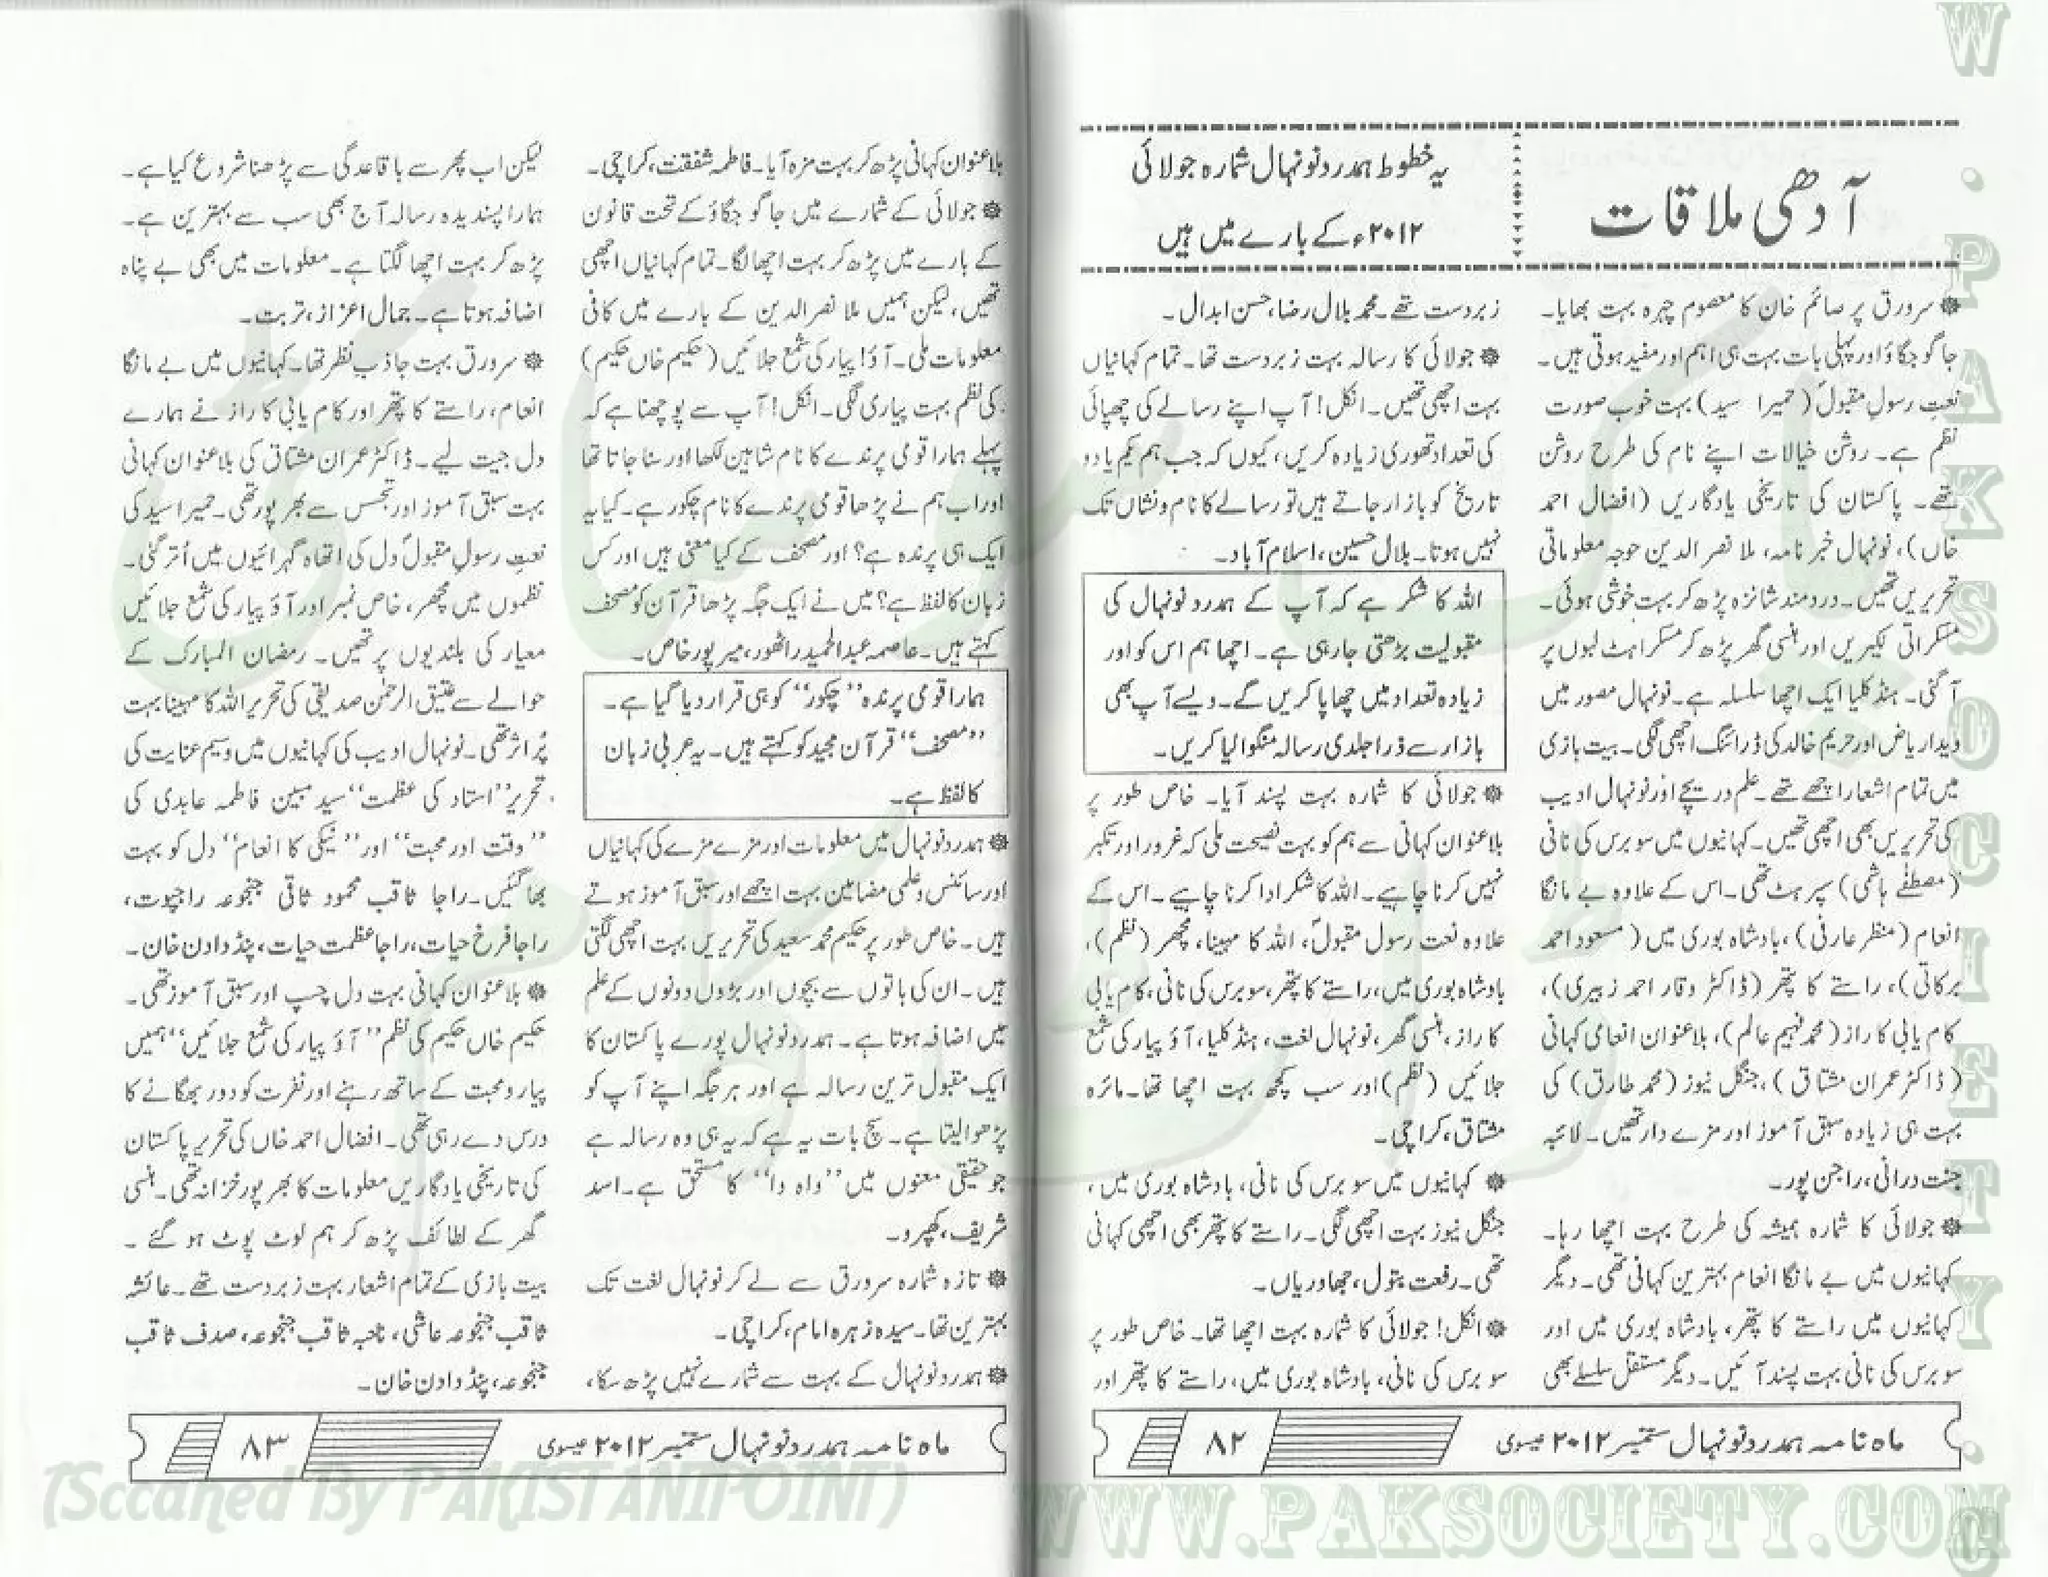 آدھی ملاقات
یہ خطوط ہمدرد نونہال شمارہ جولائی
۲۰۱۲ء کے بارے میں ہیں
❁ سرورق پر صائم خان کا معصوم چہرہ بہت بھایا۔
جاگو جگاؤ اور پہلی بات بہت ہی اہم اور مفید ہوتی ہیں۔
نعتِ رسولِ مقبولؐ (حمیرا سید) بہت خوب صورت
نظم ہے۔ روشن خیالات اپنے نام کی طرح روشن
تھے۔ پاکستان کی تاریخی یادگاریں (افضال احمد
خاں)، نونہال خبرنامہ، ملا نصرالدین خوجہ معلوماتی
تحریریں تھیں۔ دردمند شانزہ پڑھ کر بہت خوشی ہوئی۔
مسکراتی لکیریں اور ہنسی گھر پڑھ کر مسکراہٹ لبوں پر
آ گئی۔ ہنڈکلیا ایک اچھا سلسلہ ہے۔ نونہال مصور میں
دیدار ریاض اور حریم خالد کی ڈرائنگ اچھی لگی۔ بیت بازی
میں تمام اشعار اچھے تھے۔ علم دریچے اور نونہال ادیب
کی تحریریں بھی اچھی تھیں۔ کہانیوں میں سو برس کی نانی
(مصطفےٰ ہاشمی) سپرہٹ تھی۔ اس کے علاوہ بے مانگا
انعام (منظر عارفی)، بادشاہ بوری میں (مسعود احمد
برکاتی)، راستے کا پتھر (ڈاکٹر وقار احمد زبیری)،
کام یابی کا راز (محمد فہیم عالم)، بلاعنوان انعامی کہانی
(ڈاکٹر عمران مشتاق)، جنگل نیوز (محمد طارق) کی
بہت ہی زیادہ سبق آموز اور مزے دار تھیں۔ لائبہ
جنت درانی، راجن پور۔
❁ جولائی کا شمارہ ہمیشہ کی طرح بہت اچھا رہا۔
کہانیوں میں بے مانگا انعام بہترین کہانی تھی۔ دیگر
کہانیوں میں راستے کا پتھر، بادشاہ بوری میں اور
سو برس کی نانی بہت پسند آئیں۔ دیگر مستقل سلسلے بھی
زبردست تھے۔ محمد بلال رضا، حسن ابدال۔
❁ جولائی کا رسالہ بہت زبردست تھا۔ تمام کہانیاں
بہت اچھی تھیں۔ انکل! آپ اپنے رسالے کی چھپائی
کی تعداد تھوری زیادہ کریں، کیوں کہ جب ہم یکم یا دو
تاریخ کو بازار جاتے ہیں تو رسالے کا نام و نشاں تک
نہیں ہوتا۔ بلال حسین، اسلام آباد۔
اللہ کا شکر ہے کہ آپ کے ہمدرد نونہال کی
مقبولیت بڑھتی جا رہی ہے۔ اچھا ہم اس کو اور
زیادہ تعداد میں چھاپا کریں گے۔ ویسے آپ بھی
بازار سے ذرا جلدی رسالہ منگوا لیا کریں۔
❁ جولائی کا شمارہ بہت پسند آیا۔ خاص طور پر
بلاعنوان کہانی سے ہم کو بہت نصیحت ملی کہ غرور اور تکبر
نہیں کرنا چاہیے۔ اللہ کا شکر ادا کرنا چاہیے۔ اس کے
علاوہ نعت رسول مقبولؐ، اللہ کا مہینا، مچھر (نظم)،
بادشاہ بوری میں، راستے کا پتھر، سو برس کی نانی، کام یابی
کا راز، ہنسی گھر، نونہال لغت، ہنڈکلیا، آؤ پیار کی شمع
جلائیں (نظم) اور سب کچھ بہت اچھا تھا۔ مائرہ
مشتاق، کراچی۔
❁ کہانیوں میں سو برس کی نانی، بادشاہ بوری میں،
جنگل نیوز بہت اچھی لگی۔ راستے کا پتھر بھی اچھی کہانی
تھی۔ رفعت بتول، جھاوریاں۔
❁ انکل! جولائی کا شمارہ بہت اچھا تھا۔ خاص طور پر
سو برس کی نانی، بادشاہ بوری میں، راستے کا پتھر اور
ماہ نامہ ہمدرد نونہال ستمبر ۲۰۱۲ عیسوی
۸۲
بلاعنوان کہانی پڑھ کر بہت مزہ آیا۔ فاطمہ شفقت، کراچی۔
❁ جولائی کے شمارے میں جاگو جگاؤ کے تحت قانون
کے بارے میں پڑھ کر بہت اچھا لگا۔ تمام کہانیاں اچھی
تھیں، لیکن ہمیں ملا نصرالدین کے بارے میں کافی
معلومات ملی۔ آؤ! پیار کی شمع جلائیں (حکیم خاں حکیم)
کی نظم بہت پیاری لگی۔ انکل! آپ سے پوچھنا ہے کہ
پہلے ہمارا قومی پرندے کا نام شاہین لکھا اور سنا جاتا تھا
اور اب ہم نے پڑھا قومی پرندے کا نام چکور ہے۔ کیا یہ
ایک ہی پرندہ ہے؟ اور مصحف کے کیا معنی ہیں اور کس
زبان کا لفظ ہے؟ میں نے ایک جگہ پڑھا قرآن کو مصحف
کہتے ہیں۔ عاصمہ عبدالحمید راٹھور، میرپورخاص۔
ہمارا قومی پرندہ ”چکور“ کو ہی قرار دیا گیا ہے۔
”مصحف“ قرآن مجید کو کہتے ہیں۔ یہ عربی زبان
کا لفظ ہے۔
❁ ہمدرد نونہال میں معلومات اور مزے مزے کی کہانیاں
اور سائنس و علمی مضامین بہت اچھے اور سبق آموز ہوتے
ہیں۔ خاص طور پر حکیم محمد سعید کی تحریریں بہت اچھی لگتی
ہیں۔ ان کی باتوں سے بچوں اور بڑوں دونوں کے علم
میں اضافہ ہوتا ہے۔ ہمدرد نونہال پورے پاکستان کا
ایک مقبول ترین رسالہ ہے اور ہر جگہ اپنے آپ کو
پڑھوا لیتا ہے۔ سچ بات یہ ہے کہ یہ ہی وہ رسالہ ہے
جو حقیقی معنوں میں ”واہ وا“ کا مستحق ہے۔ اسد
شریف، کھپرو۔
❁ تازہ شمارہ سرورق سے لے کر نونہال لغت تک
بہترین تھا۔ سیدہ زہرہ امام، کراچی۔
❁ ہمدرد نونہال کے بہت سے شمارے نہیں پڑھ سکا،
لیکن اب پھر سے باقاعدگی سے پڑھنا شروع کیا ہے۔
ہمارا پسندیدہ رسالہ آج بھی سب سے بہترین ہے۔
پڑھ کر بہت اچھا لگتا ہے۔ معلومات میں بھی بے پناہ
اضافہ ہوتا ہے۔ جمال اعزاز، تربت۔
❁ سرورق بہت جاذب نظر تھا۔ کہانیوں میں بے مانگا
انعام، راستے کا پتھر اور کام یابی کا راز نے ہمارے
دل جیت لیے۔ ڈاکٹر عمران مشتاق کی بلاعنوان کہانی
بہت سبق آموز اور تجسس سے بھرپور تھی۔ حمیرا سید کی
نعتِ رسولِ مقبولؐ دل کی اتھاہ گہرائیوں میں اُتر گئی۔
نظموں میں مچھر، خاص نمبر اور آؤ پیار کی شمع جلائیں
معیار کی بلندیوں پر تھیں۔ رمضان المبارک کے
حوالے سے عتیق الرحمٰن صدیقی کی تحریر اللہ کا مہینا بہت
پُراثر تھی۔ نونہال ادیب کی کہانیوں میں وسیم عنایت کی
تحریر ”استاد کی عظمت“ سید مبین فاطمہ عابدی کی
”وقت اور محبت“ اور ”نیکی کا انعام“ دل کو بہت
بھا گئیں۔ راجا ثاقب محمود ثاقی جنجوعہ راجپوت،
راجا فرخ حیات، راجا عظمت حیات، پنڈ دادن خان۔
❁ بلاعنوان کہانی بہت دل چسپ اور سبق آموز تھی۔
حکیم خاں حکیم کی نظم ”آؤ پیار کی شمع جلائیں“ ہمیں
پیار و محبت کے ساتھ رہنے اور نفرت کو دور بھگانے کا
درس دے رہی تھی۔ افضال احمد خاں کی تحریر پاکستان
کی تاریخی یادگاریں معلومات کا بھرپور خزانہ تھی۔ ہنسی
گھر کے لطائف پڑھ کر ہم لوٹ پوٹ ہو گئے۔
بیت بازی کے تمام اشعار بہت زبردست تھے۔ عائشہ
ثاقب جنجوعہ عاشی، ناحیہ ثاقب جنجوعہ، صدف ثاقب
جنجوعہ، پنڈ دادن خان۔
ماہ نامہ ہمدرد نونہال ستمبر ۲۰۱۲ عیسوی
۸۳
(Sccaned By PAKISTANIPOINT)
WWW.PAKSOCIETY.COM
W.PAKSOCIETY.C
پاک سوسائٹی ڈاٹ کام